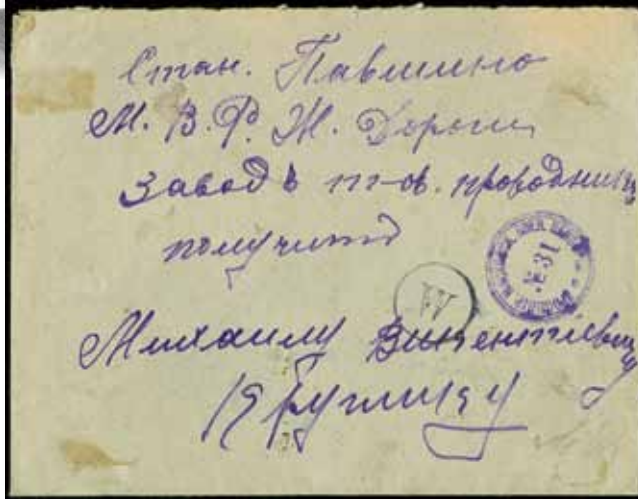 Стан. Павшино
М. В. Р. Ж. Дороги
Заводъ т-ов. проводникъ
получить
№31
М
Михаилу Викентіевичу